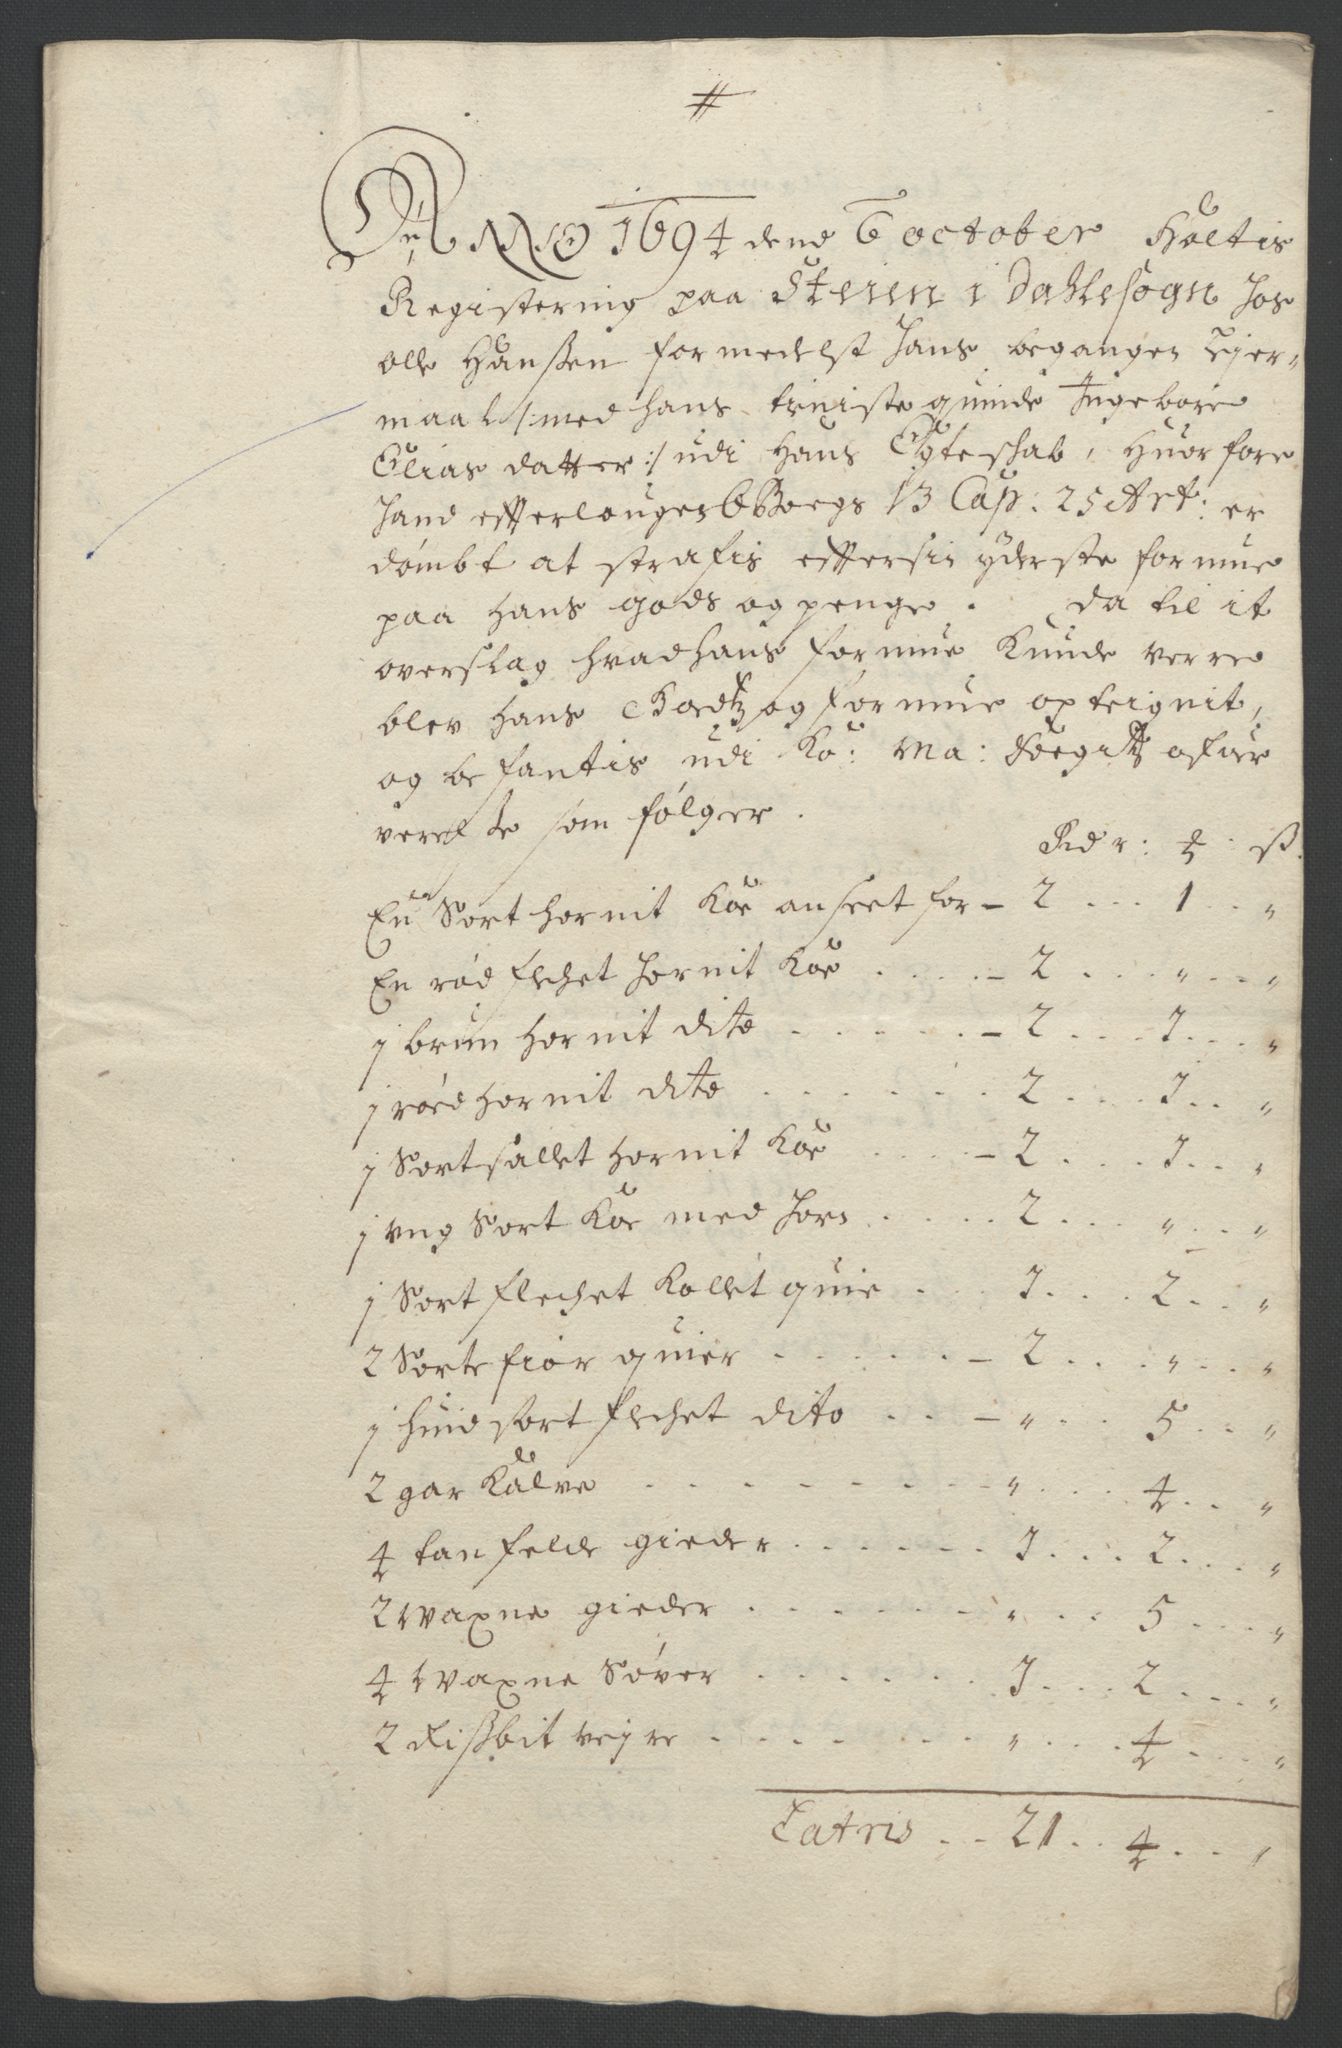 #
Anno 1694 dend 6 october Holtis
Registering paa Steien i Dahlesogn hos
olle Hanssen formedelst hans begangen Leyer-
maal /: med hans tieniste quinde Ingebore
Elias datter :/ udi Hans Egteschab, Huorfore
hand effter lougens 6 Bogs 13 Cap: 25 Art: er
dømbt at straffis effter sin yderste formue
paa hans gods og penge. Da til it
overslag hvad hans formue Kunde verre
blev hans Godtz og formue opteignit,
og befantis udi Ko: Ma: Foegitz
som følger.
Rdr: ß
En Sort hornit Koe anseet for - 2 ... 1 .. "
En rød flechet hornit Koe .... - 2 ... " .. "
1 brun hornit dito ...... - 2 ... 1 ... "
1 roed hornit dito ...... 2 ... 1 .. "
1 Sortsallet hornit Koe .... - 2 ... 1 .. "
1 ung Sort Koe med horn .... 2 ... " .. "
1 Sort flechet Kollet quie ... 1 ... 2 .. "
2 Sorte fiør quier ..... - 2 ... " .. "
1 huid sort flechet dito ... - " ... 5 .. "
2 gar Kalve ........ - " ... 4 .. "
4 tanfelde gieder ...... 1 ... 2 ... "
2 Waxne gieder ...... " ... 5 ... "
4 Waxne Søver ...... 1 ... 2 ... "
2 veyre ....... " ... 4 ... "
Latris ... 21 .. 4 ... "